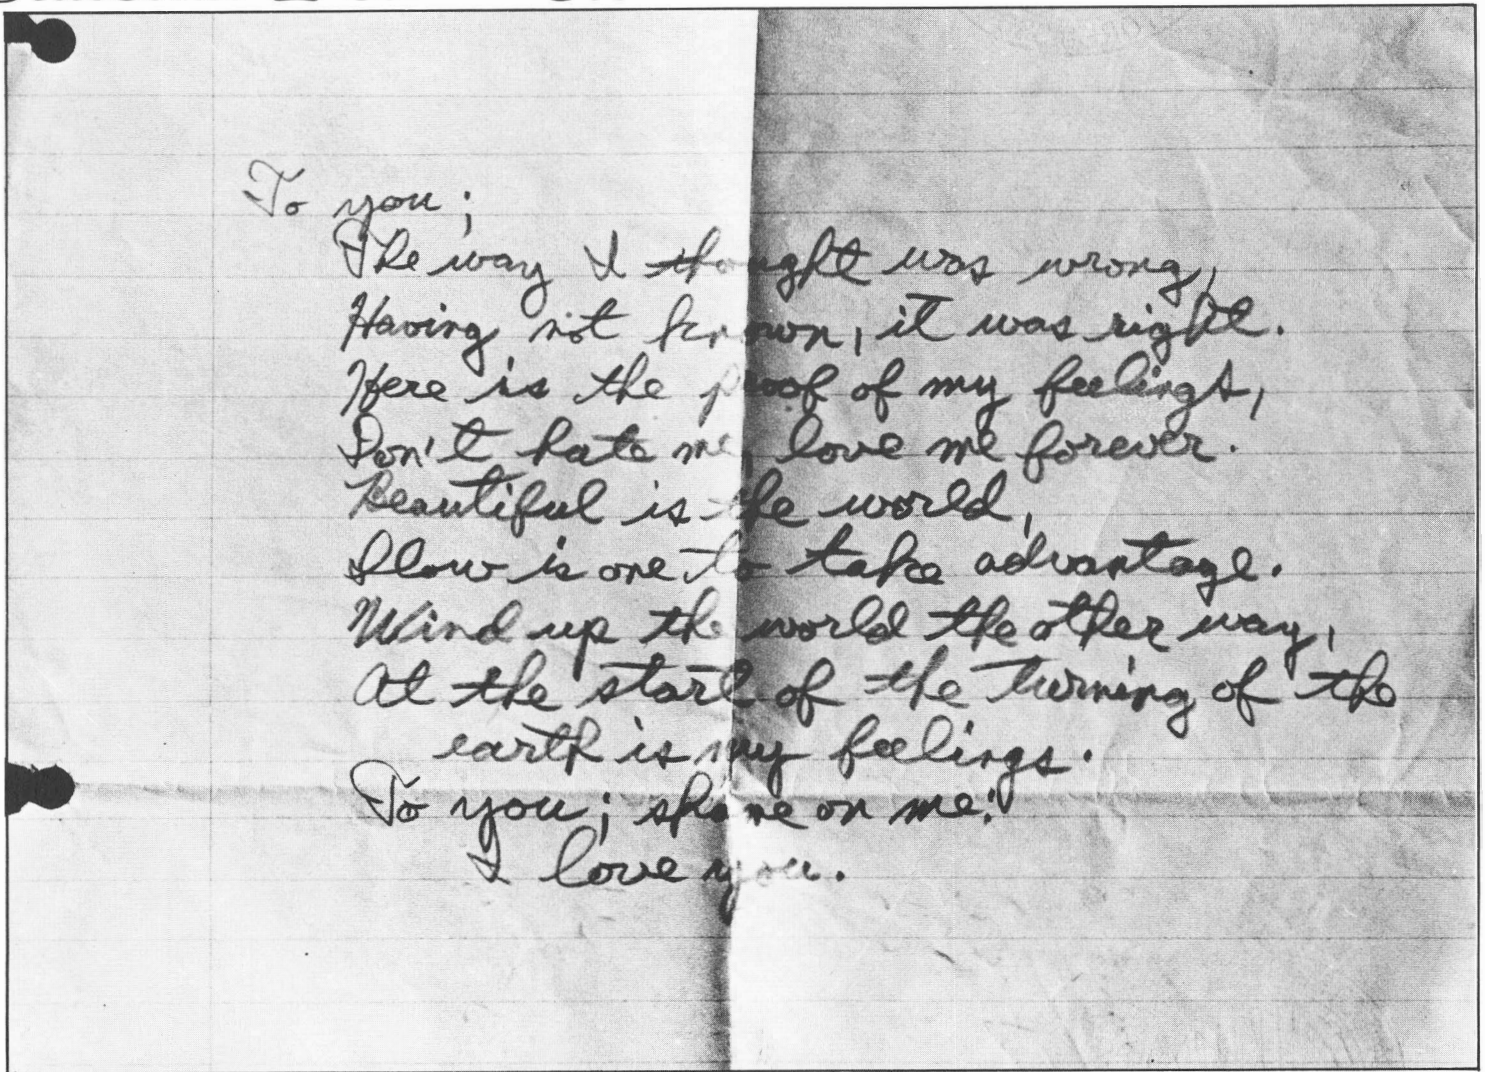 To you;
The way I thought was wrong,
Having not known, it was right.
Here is the proof of my feelings,
Don't hate me, love me forever.
Beautiful is the world,
Slow is one to take advantage.
Wind up the world the other way,
At the start of the turning of the
earth is my feelings.
To you; shame on me!
I love you.